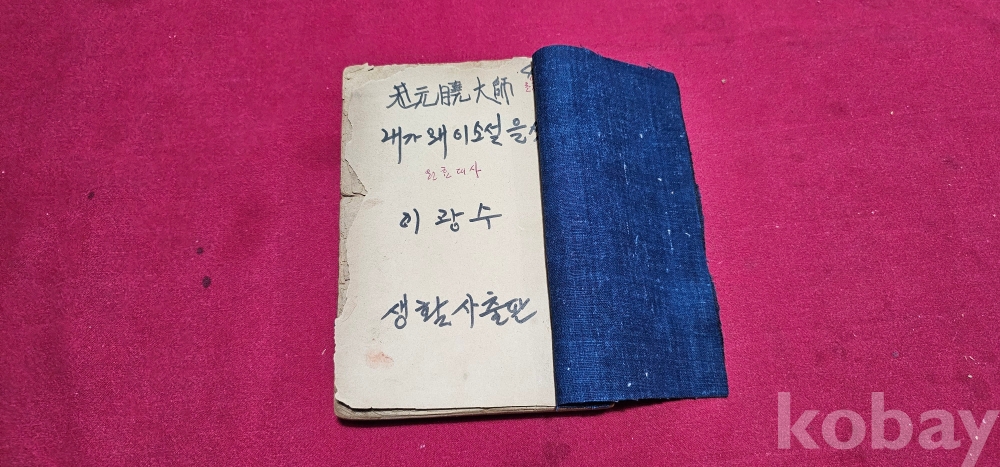 元曉大師
내가 왜 이 소설을
원효대사
이광수
생활사출판
kobay